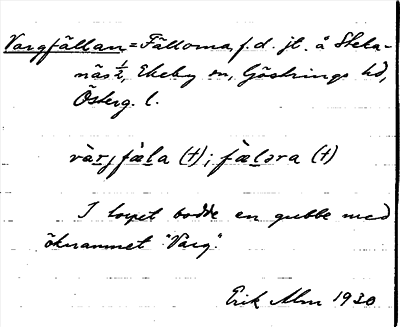 Vargfällan = Fällorna, f. d. jt. å Skeda-
näs ½, Ekeby sn, Göstrings hd,
Österg. l.
vàrjfä̀la (†); fä̀lɔra (†)
I torpet bodde en gubbe med
öknamnet "Varg".
Erik Alm 1930